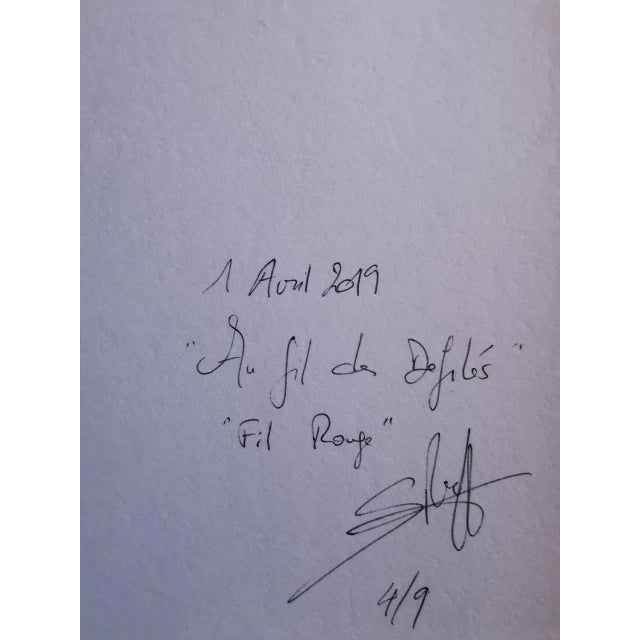 1 Avril 2019
"Au fil des Défilés"
"Fil Rouge"
4/9